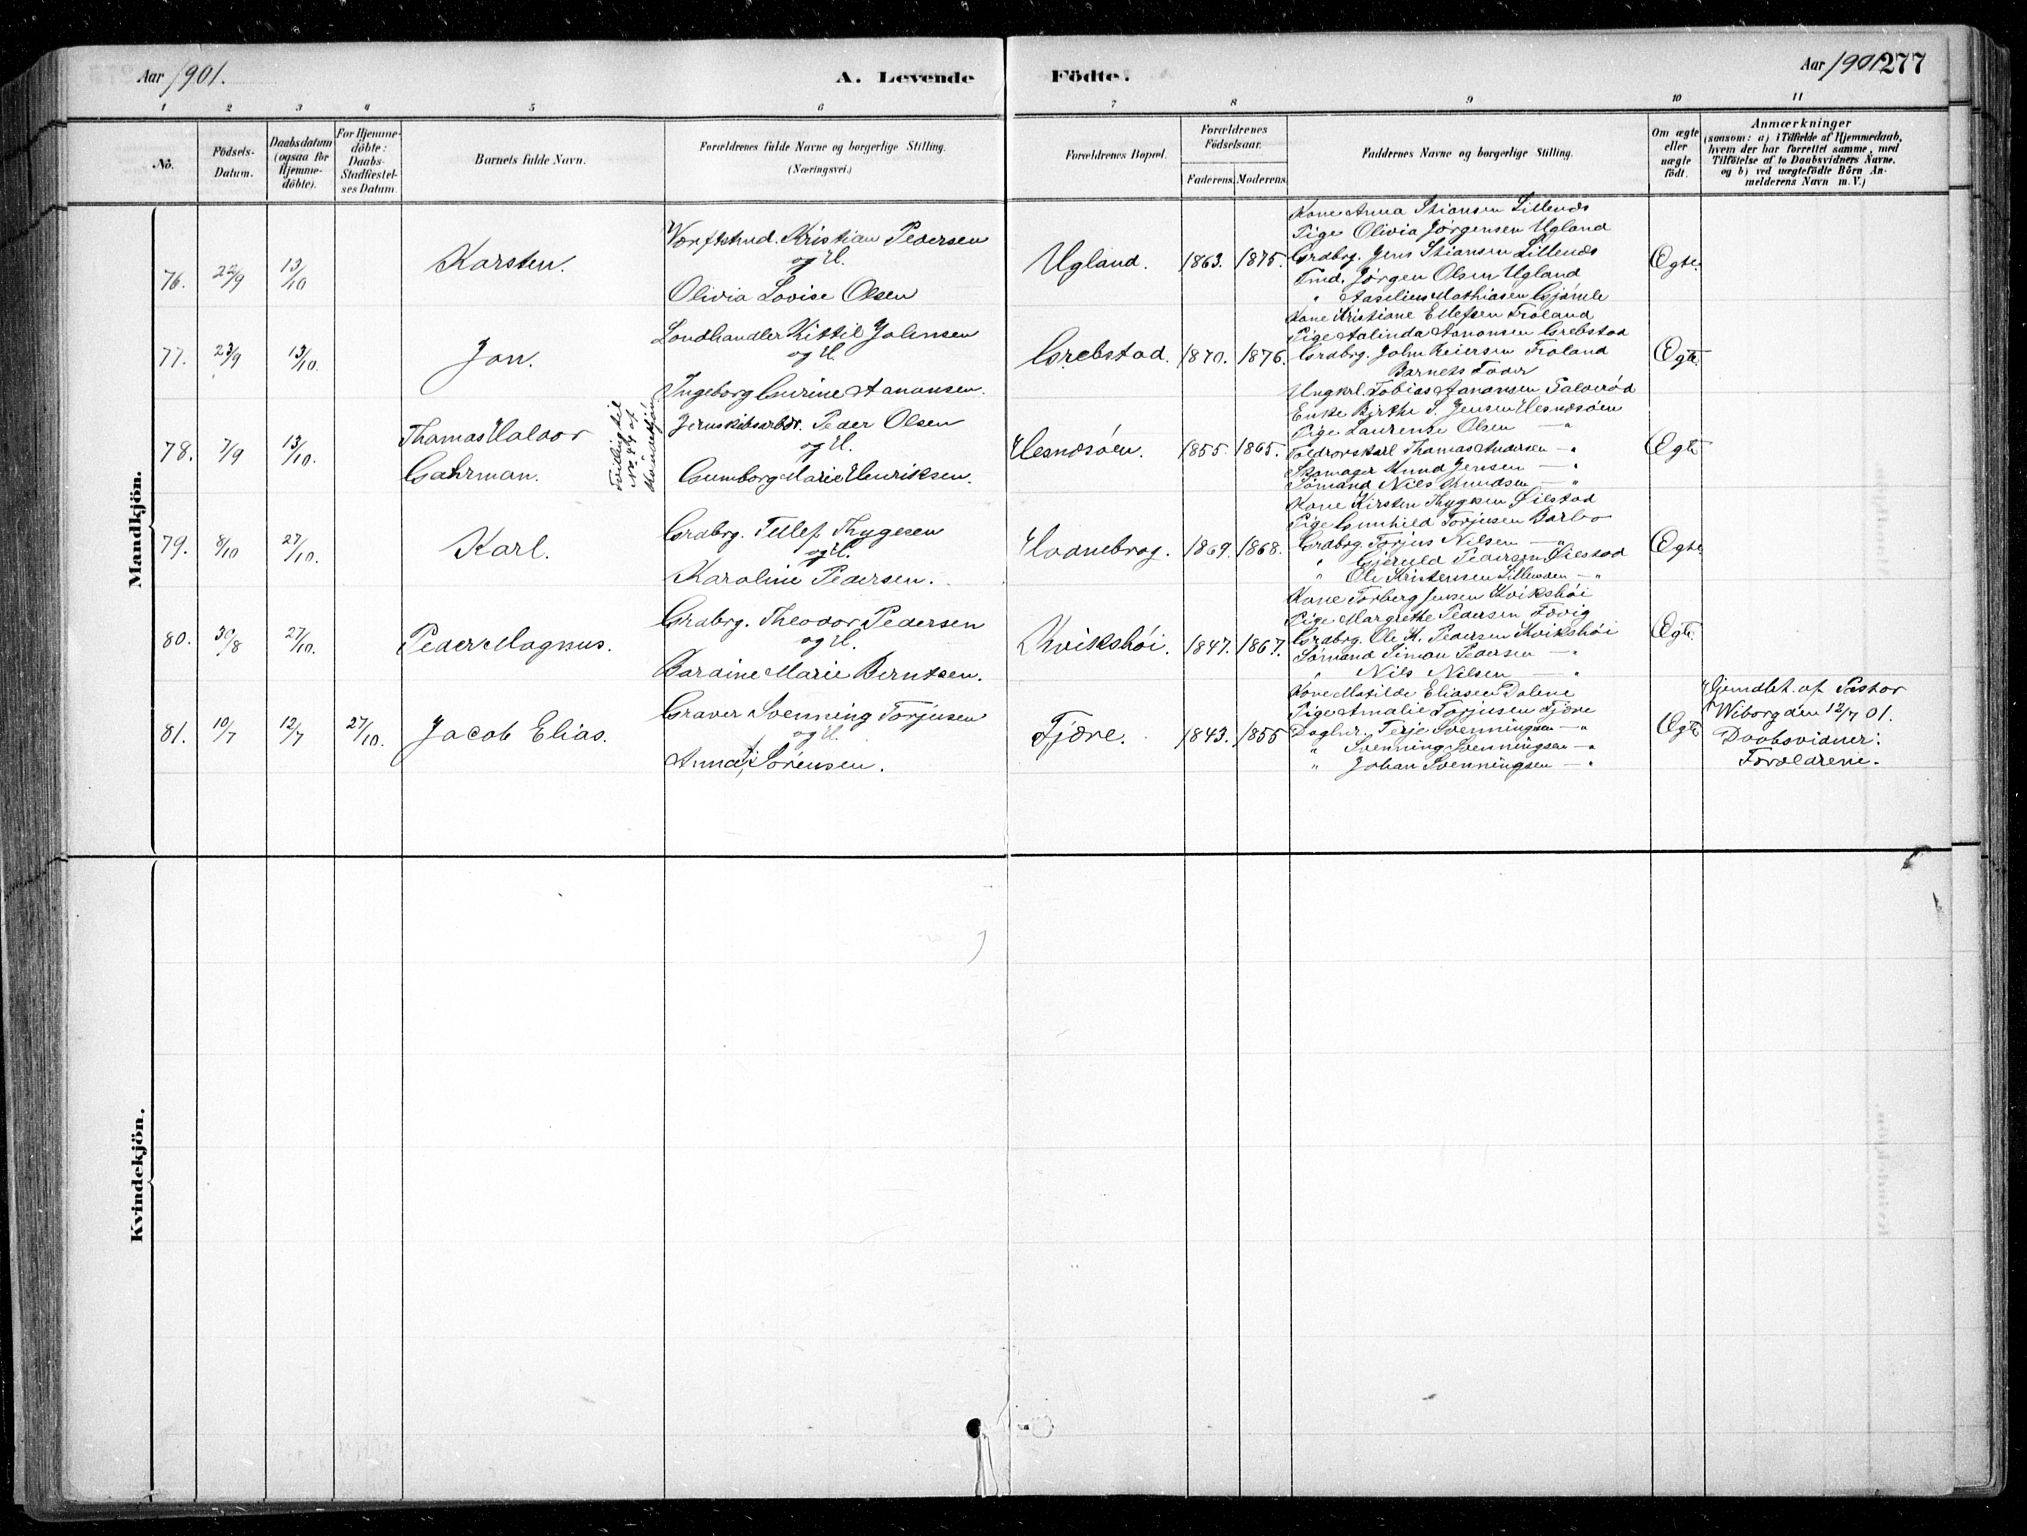 Aar 1901.
A. Levende Födte.
Aar 1901 277
1 2 3 4 5 6 7 8 9 10 11
No.
Födsels-Datum.
Daabsdatum (ogsaa for Hjemme-döbte).
For Hjemme-döbte: Daabs-Stadfæstel-ses Datum.
Barnets fulde Navn.
Forældrenes fulde Navne og borgerlige Stilling.
(Næringsvei.)
Forældrenes Bopæl.
Forældrenes Födselsaar.
Faderens. Moderens.
Faddernes Navne og borgerlige Stilling.
Om ægte eller uægte födt.
Anmærkninger
(saasom: a) i Tilfælde af Hjemmedaab, hvem der har forrettet samme, med Tilföielse af to Daabsvidners Navne. og b) ved uægtefödte Börn An-melderens Navn m. V.)
Mandkjön.
76. 22/9 13/10 Karsten.
Værftstmd. Kristian Pedersen
og H.
Olivia Lovise Olsen
Ugland. 1863. 1875.
Kone Anna Stiansen Lillenæs
Pige Olivia Jørgensen Ugland
Grdbrg. Jens Stiansen Lillenæs
Tmd. Jørgen Olsen Ugland
" Aaselius Mathiasen Gjømle
Ægte.
77. 23/9 13/10. Jon.
Landhandler Kittil Johnsen
og H.
Ingeborg Gurine Aanonsen.
Grebstad. 1870. 1876.
Kone Kristiane Ellefsen Froland
Pige Aalinda Aanonsen Grebstad
Grdbrg. John Reiersen Froland
Barnets Fader
Ungkrl. Tobias Aanonsen
Ægte.
78. 7/9 13/10. Thomas Haldor
Gahrman.
Tvilling til
No. 44 af
Kvindekjön
Jernskibsarbdr. Peder Olsen
og H.
Gumborg Marie Henriksen.
Hesnesøen. 1855. 1865.
Enke Birthe S. Jensen Hesnesøen
Pige Laurense Olsen — "
Toldrorskarl Thomas Andersen — "
Skomager Knud Jensen — "
Sømand Nils Knudsen — "
Ægte
79. 8/10 27/10. Karl.
Grdbrg. Tellef Thygesen
og H.
Karoline Pedersen.
Hodnebrog. 1869. 1868.
Kone Kirsten Thygesen Øilstad
Pige Gunhild Torjusen Barbo
Grdbrg. Torjus Nilsen — "
" Gjeruld Pedersen Øilstad
" Ole Kristensen — "
Ægte
80. 30/8 27/10. Peder Magnus.
Grdbrg. Theodor Pedersen
og H.
Marie Berntsen.
Kvikshøi. 1847. 1867.
Kone Torberg Jensen Kvikshøi
Pige Margrethe Pedersen Fævig
Grdbrg. Ole K. Pedersen Kvikshøi
Sømand Simon Pedersen — "
" Nils Nilsen — "
Ægte.
81. 10/7 12/7 27/10. Jacob Elias.
Graver Svenning Torjusen
og H.
Anna Sørensen.
Fjære. 1843. 1855
Kone Matilde Eliasen Dalene
Pige Amalie Torjusen Fjære
Daglnr. Terje Svenningsen — "
" Svenning Svenningsen — "
" Johan Svenningsen — "
Ægte
Hjemdbt. af Pastor
Wiborg den 12/7 01.
Daabsvidner:
Forældrene.
Kvindekjön.